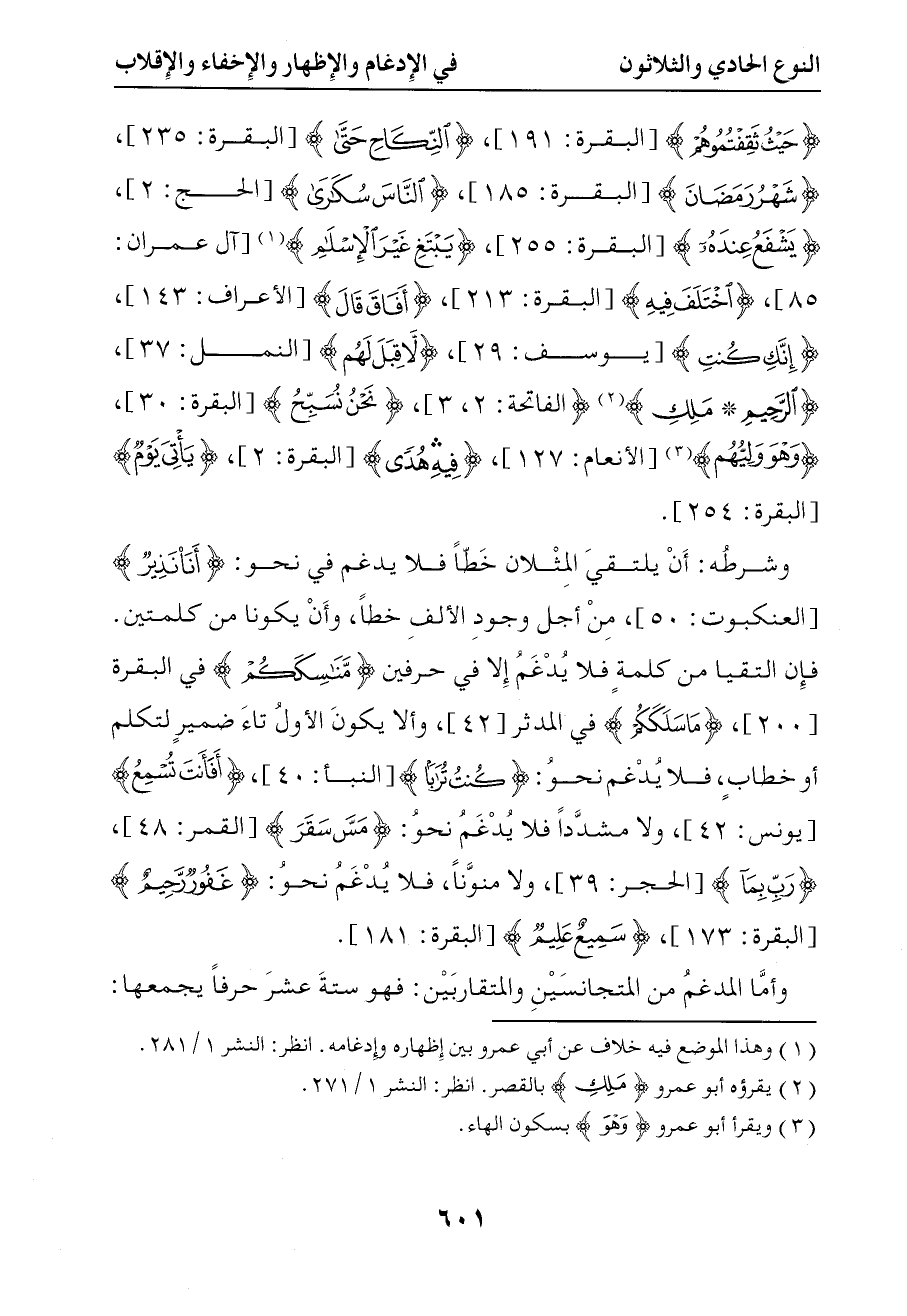 النوع الحادي والثلاثون في الإدغام والإظهار والإخفاء والإقلاب
﴿ حَيْثُ ثَقِفْتُمُوهُمْ ﴾ [البقرة: ١٩١]، ﴿ النِّكَاحِ حَتَّىٰ ﴾ [البقرة: ٢٣٥]،
﴿ شَهْرُ رَمَضَانَ ﴾ [البقرة: ١٨٥]، ﴿ النَّاسَ سُكَارَىٰ ﴾ [الحج: ٢]،
﴿ يَشْفَعُ عِندَهُۥ ﴾ [البقرة: ٢٥٥]، ﴿ يَبْتَغِ غَيْرَ الْإِسْلَٰمِ ﴾(١) [آل عمران:
٨٥]، ﴿ اخْتَلَفَ فِيهِ ﴾ [البقرة: ٢١٣]، ﴿ أَفَاقَ قَالَ ﴾ [الأعراف: ١٤٣]،
﴿ إِنَّكِ كُنتِ ﴾ [يوسف: ٢٩]، ﴿ لَا قِبَلَ لَهُم ﴾ [النمل: ٣٧]،
﴿ الرَّحِيمِ * مَلِكِ ﴾(٢) ﴿ الفاتحة: ٢، ٣]، ﴿ نَحْنُ نُسَبِّحُ ﴾ [البقرة: ٣٠]،
﴿ وَهْوَ وَلِيُّهُم ﴾(٣) [الأنعام: ١٢٧]، ﴿ فِيهِ هُدًى ﴾ [البقرة: ٢]، ﴿ يَأْتِىَ يَوْمٌ ﴾
[البقرة: ٢٥٤].
وشرطُه: أنْ يلتقيَ المثْلان خَطّاً فلا يدغم في نحو: ﴿ أَنَا نَذِيرٌ ﴾
[العنكبوت: ٥٠]، منْ أجل وجودِ الألف خطاً، وأنْ يكونا من كلمتين.
فإن التقيا من كلمةٍ فلا يُدْغَمُ إلا في حرفين ﴿ مَّنَاسِكَكُمْ ﴾ في البقرة
[٢٠٠]، ﴿ مَا سَلَكَكُمْ ﴾ في المدثر [٤٢]، وألا يكونَ الأولُ تاءَ ضميرٍ لتكلم
أو خطابٍ، فلا يُدْغم نحوُ: ﴿ كُنتُ تُرَابًا ﴾ [النبأ: ٤٠]، ﴿ أَفَأَنتَ تُسْمِعُ ﴾
[يونس: ٤٢]، ولا مشدَّداً فلا يُدْغَمُ نحوُ: ﴿ مَسَّ سَقَرَ ﴾ [القمر: ٤٨]،
﴿ رَبِّ بِمَآ ﴾ [الحجر: ٣٩]، ولا منوَّناً، فلا يُدْغَمُ نحوُ: ﴿ غَفُورٌ رَّحِيمٌ ﴾
[البقرة: ١٧٣]، ﴿ سَمِيعٌ عَلِيمٌ ﴾ [البقرة: ١٨١].
وأمَّا المدغمُ من المتجانسَيْنِ والمتقاربَيْن: فهو ستةَ عشرَ حرفاً يجمعها:
(١) وهذا الموضع فيه خلاف عن أبي عمرو بين إظهاره وإدغامه. انظر: النشر ١/ ٢٨١.
(٢) يقرؤه أبو عمرو ﴿ مَلِكِ ﴾ بالقصر. انظر: النشر ١/ ٢٧١.
(٣) ويقرأ أبو عمرو ﴿ وَهْوَ ﴾ بسكون الهاء.
٦٠١